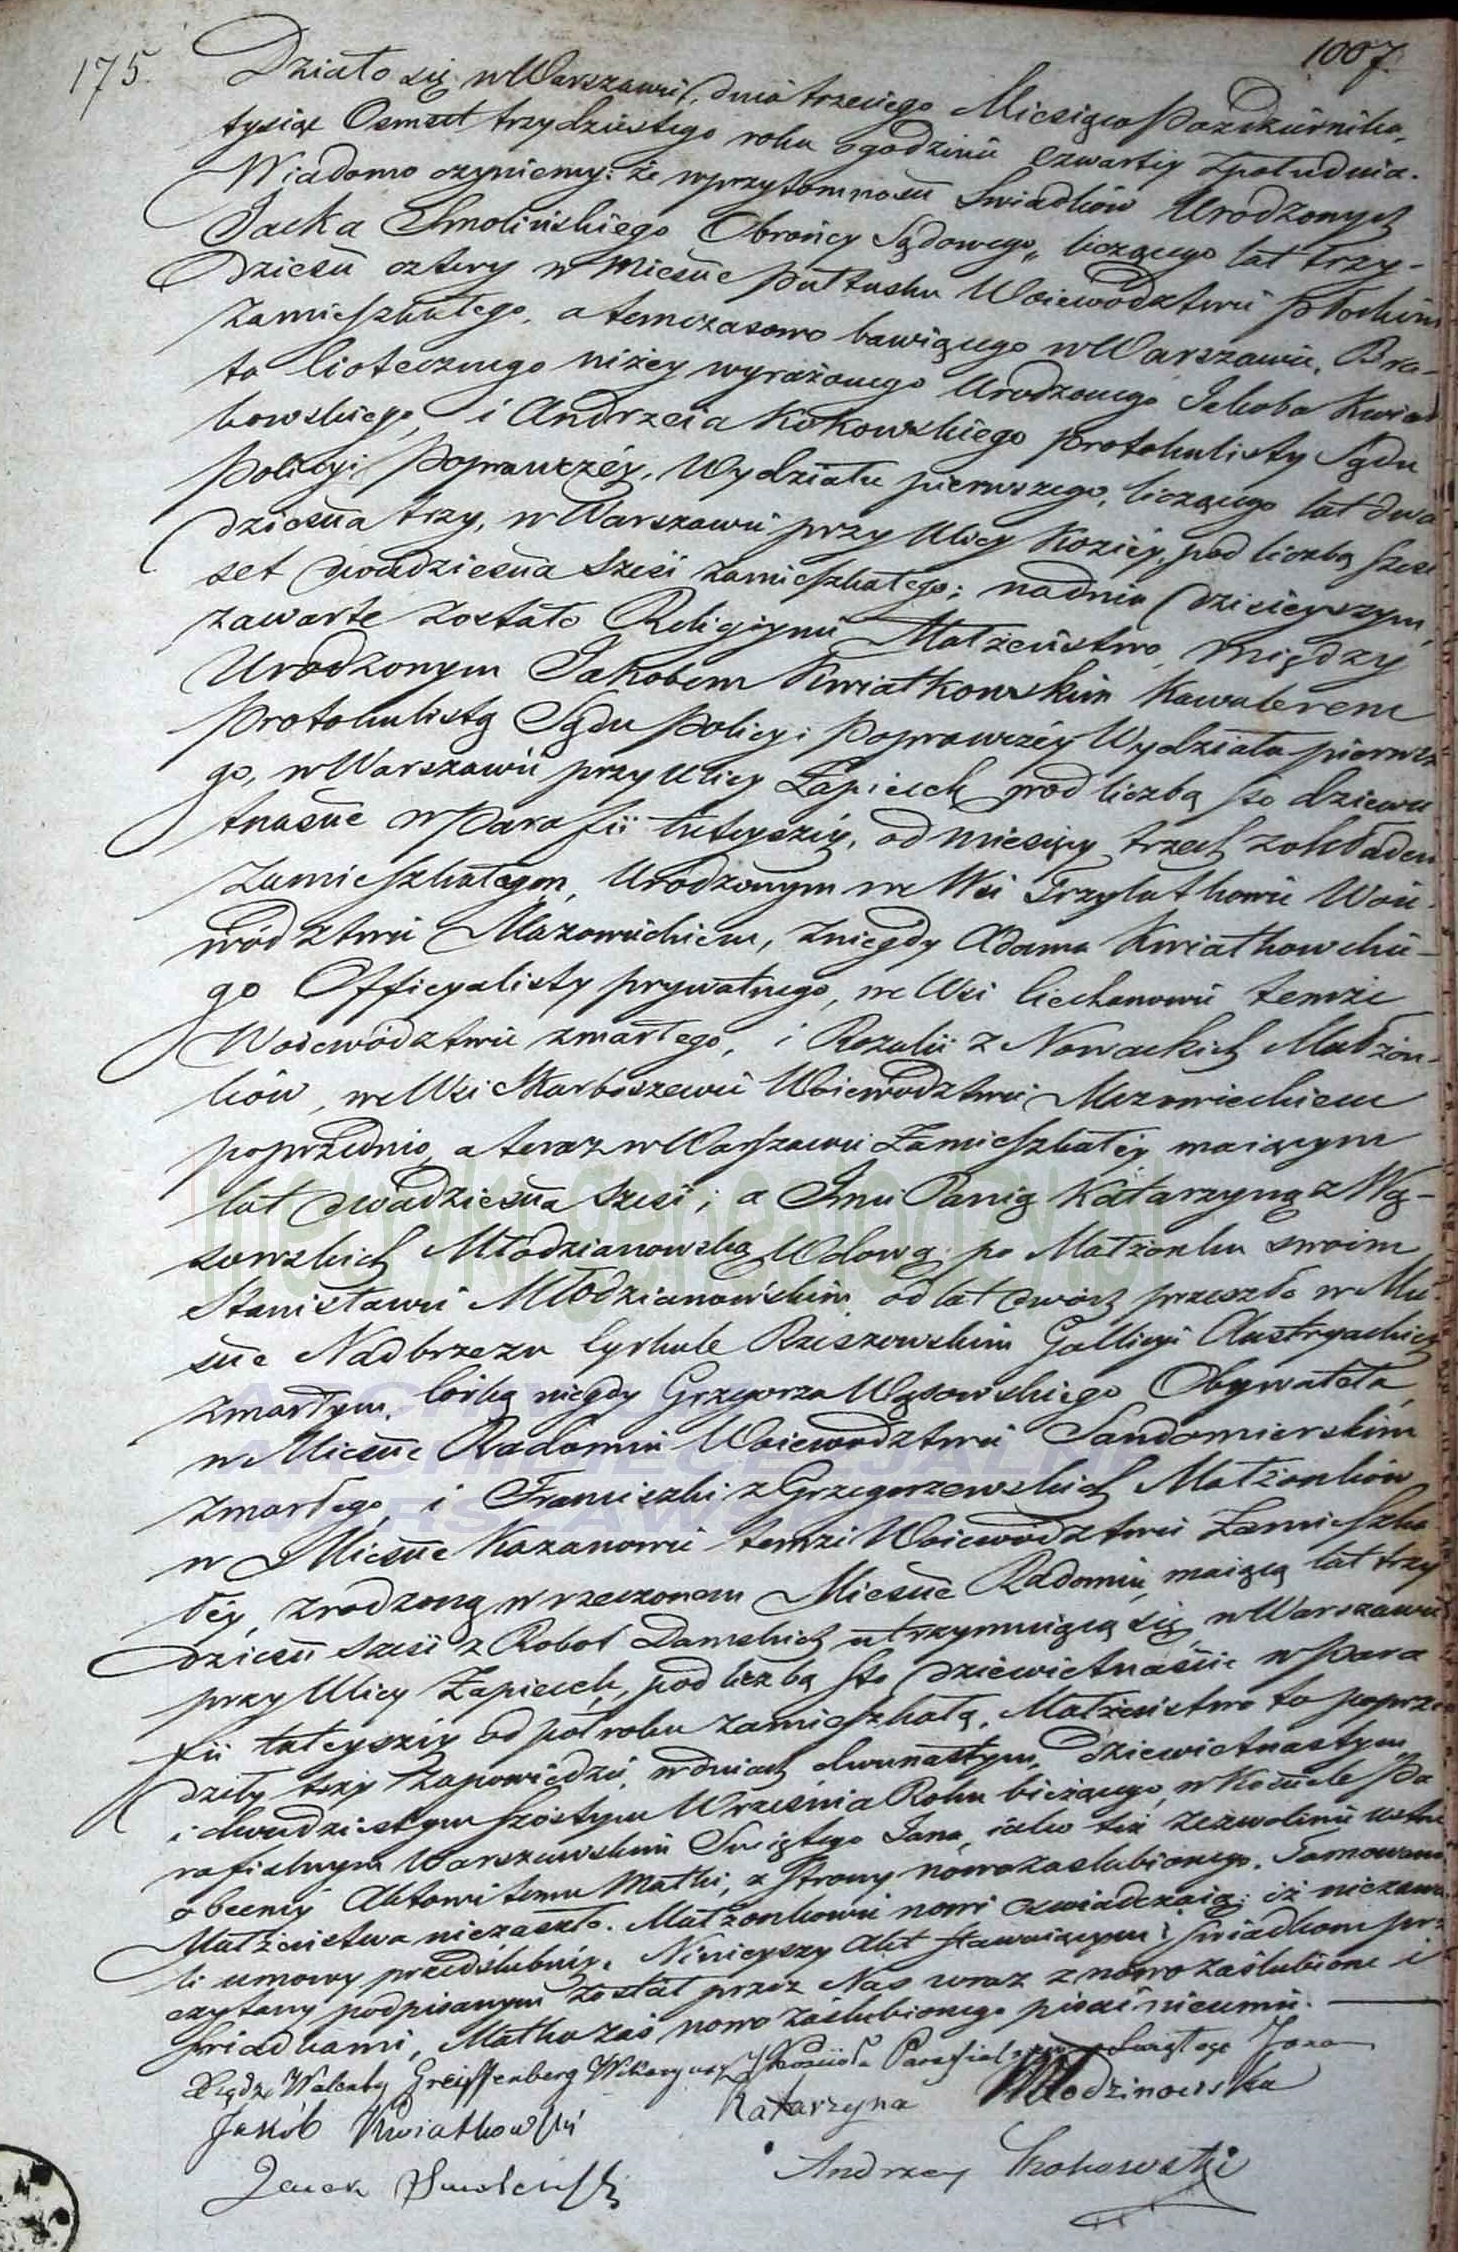 1007.
175. Działo się w Warszawie, dnia trzeciego Miesiąca Pazdziernika,
tysiąc Osmset trzydziestego roku o godzinie czwartey z południa.
Wiadomo czyniemy: że w przytomności Swiadków Urodzonych
Jacka Smolińskiego Obrońcy Sądowego, liczącego lat trzy-
dzieści cztery w Mieście Pułtusku Woiewodztwie Płockim
zamieszkałego, a temczasowo bawiącego w Warszawie, Bra-
ta ciotecznego niżey wyrażonego Urodzonego Jakoba Kwiat
kowskiego, i Andrzeia Kokowskiego Protokulisty Sądu
Policyi Poprawczéy, Wydziału pierwszego, liczącego lat dwa
dzieścia trzy, w Warszawie przy Ulicy Koziéy, pod liczbą sześć
set dwadzieścia sześć zamieszkałego; na dniu dzisieyszym,
zawarte zostało Religijnie Małżeństwo, między
Urodzonym Jakobem Kwiatkowskim Kawalerem
Protokulistą Sądu Policyi Poprawczéy Wydziału pierwsze
go, w Warszawie przy Ulicy Zapiecek pod liczbą sto dziewię
tnaście w Parafii tuteyszéy, od miesięcy trzech z okładem
zamieszkałym, Urodzonym we Wsi Trzylatkowie Woie-
wództwie Mazowieckiem, z niegdy Adama Kwiatkowskie-
go Officyalisty prywatnego, we Wsi Ciechanowie temże
Woiewództwie zmarłego, i Rozalii z Nowackich Małżon-
ków, we Wsi Skarboszewie Woiewództwie Mazowieckiem
poprzednio, a teraz w Warszawie Zamieszkałéy, maiącym
lat dwadzieścia sześć; a Imć Panią Katarzyną z Wą-
sowskich Młodzianowską Wdową po Małżonku swoim
Stanisławie Młodzianowskim, od lat dwóch przeszło w Mie-
ście Nadbrzezu Cyrkule Rzeszowskim Gallicyi Austryackiey
zmarłym, Córką niegdy Grzegorza Wąsowskiego Obywatela,
w Mieście Radomiu Woiewodztwie Sandomierskim
zmarłego, i Franciszki z Grzegorzewskich Małżonków
w Mieście Kazanowie temże Woiewodztwie Zamieszka
łéy, zrodzoną w rzeczonem Mieście Radomiu, maiącą lat trzy
dzieści sześć z Robot Damskich utrzymuiącą się, w Warszawie
przy Ulicy Zapiecek, pod liczbą sto dziewiętnaście w Para
fii tuteyszéy od pół roku zamieszkałą. Małżeństwo to poprze
dziły trzy Zapowiedzie, w dniach dwunastym, dziewiętnastym
i dwudziestym szóstym Września Roku bieżącego, w Kościele Pa
rafialnym Warszawskim Swiętego Jana, iako też zezwolenie ustne
obecnéy Aktowi temu Matki, z strony nowozaslubionego. Tamowanie
Małżeństwa niezaszło. Małżonkowie nowi oswiadczaią: iż niezawar
li umowy przedślubnéy. Ninieyszy Akt stawaiącym i swiadkom prze
czytany podpisanym został przez Nas wraz z nowozaślubione i
swiadkami, Matka zaś nowozaślubionego pisać nieumie.
Xiądz Walenty Greiffenberg Wikaryusz Kościoła Parafialnego Swiętego Jana
Jakób Kwiatkowski Katarzyna Młodzinowska
Jacek Smoleński Andrzey Kokowski
HISTORYKI.GENEALODZY.PL
ARCHIWUM
ARCHIDIECEZJALNE
WARSZAWSKIE